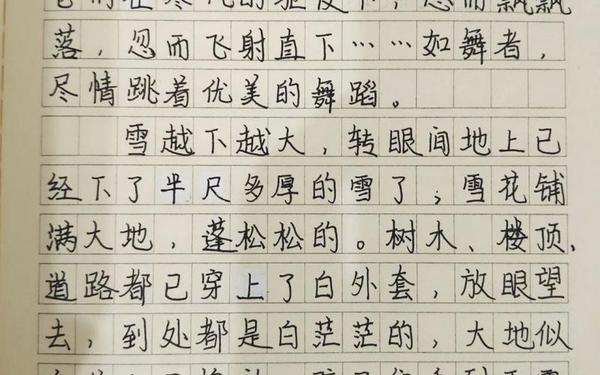 它们在寒风的驱使下，忽而飘飘
落，忽而飞射直下……如舞者，
尽情跳着优美的舞蹈。
雪越下越大，转眼间地上已
经下了半尺多厚的雪了，雪花铺
满大地，蓬松松的。树木、楼顶、
道路都已穿上了白外套，放眼望
去，到处都是白茫茫的，大地似